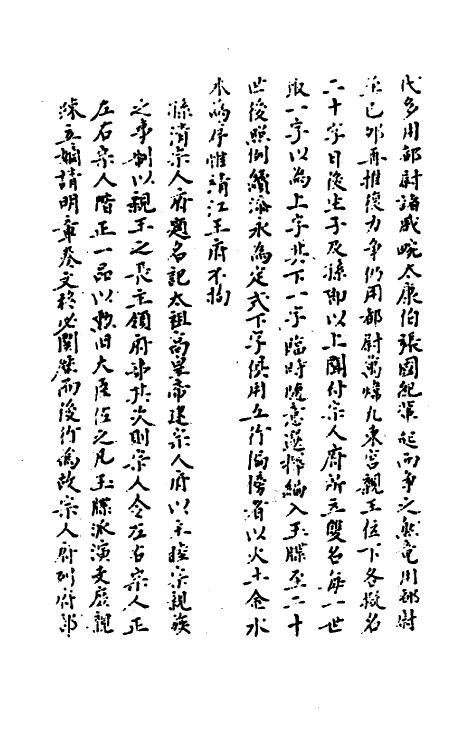 代多用都尉諸戚畹太康伯張國紀軰起而爭之然竟用都尉
至已卯再推復力爭仍用都尉萬煒凡東宮親王位下各擬名
二十字日後生子及孫即以上聞付宗人府所立雙名每一世
取一字以為上字其下一字臨時隨意選擇編入玉牒至二十
世後照例續添永為定式下字俱用五行偏傍者以火土金水
木為序惟靖江王府不拘
孫清宗人府題名記太祖高皇帝建宗人府以主拴宗親族
之事制以親王之長主領府事其次則宗人令左右宗人正
左右宗人階正一品以勲旧大臣任之凡玉牒派演支庶親
疎立嫡請明章奏文移必関歴而後行為故宗人府列府部